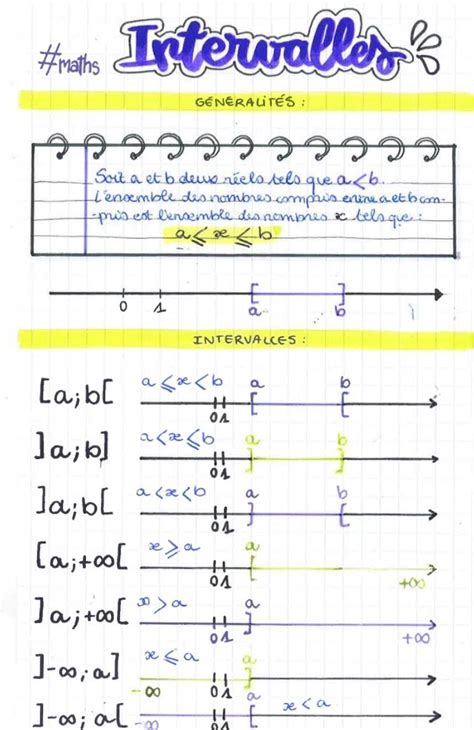 #maths Intervalles
GÉNÉRALITÉS :
Soit a et b deux réels tels que a<b.
L'ensemble des nombres compris entre a et b com-
-pris est l'ensemble des nombres x tels que :
a⩽x⩽b
0 1 a b
INTERVALLES :
[a;b[ a⩽x<b 0 1 a b
]a;b] a<x⩽b 0 1 a b
]a;b[ a<x<b 0 1 a b
[a;+∞[ x⩾a 0 1 a +∞
]a;+∞[ x>a 0 1 a +∞
]-∞;a] x⩽a -∞ 0 1 a
]-∞;a[ -∞ 0 1 a x<a